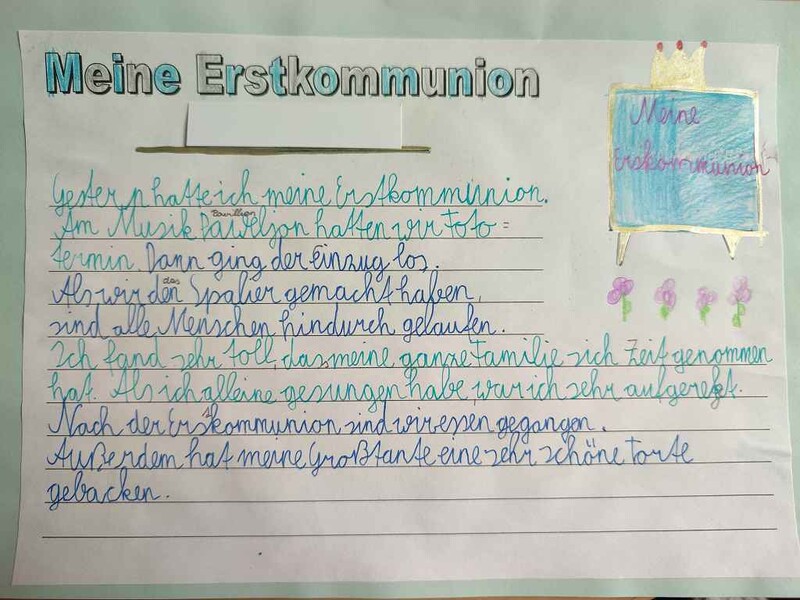 Meine Erstkommunion
Meine
Erskommunion
Gestern hatte ich meine Erstkommunion.
Pavillion
Am Musik Paweljon hatten wir Foto=
termin. Dann ging der Einzug los.
das
Als wir den Spalier gemacht haben,
sind alle Menschen hindurch gelaufen.
Ich fand sehr toll, das meine ganze Familie sich Zeit genommen
hat. Als ich alleine gesungen habe, war ich sehr aufgeregt.
Nach der Erstkommunion, sind wir essen gegangen.
Außerdem hat meine Großtante eine sehr schöne Torte
gebacken.